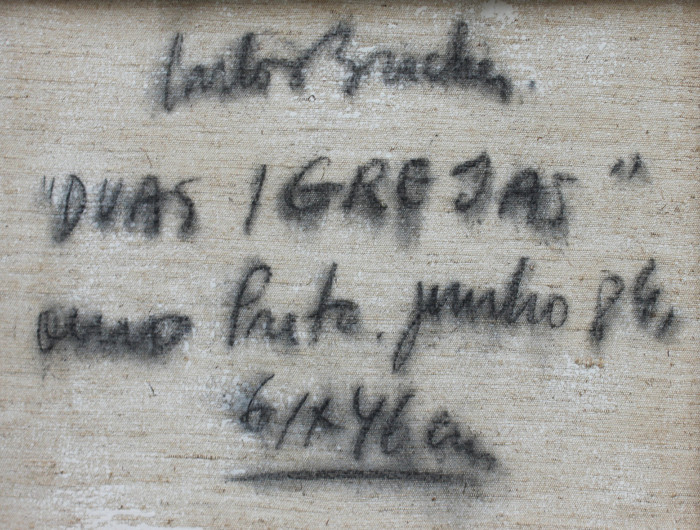 Carlos Bracher.
"DUAS IGREJAS"
ouro Preto. junho 84,
61x46 cm